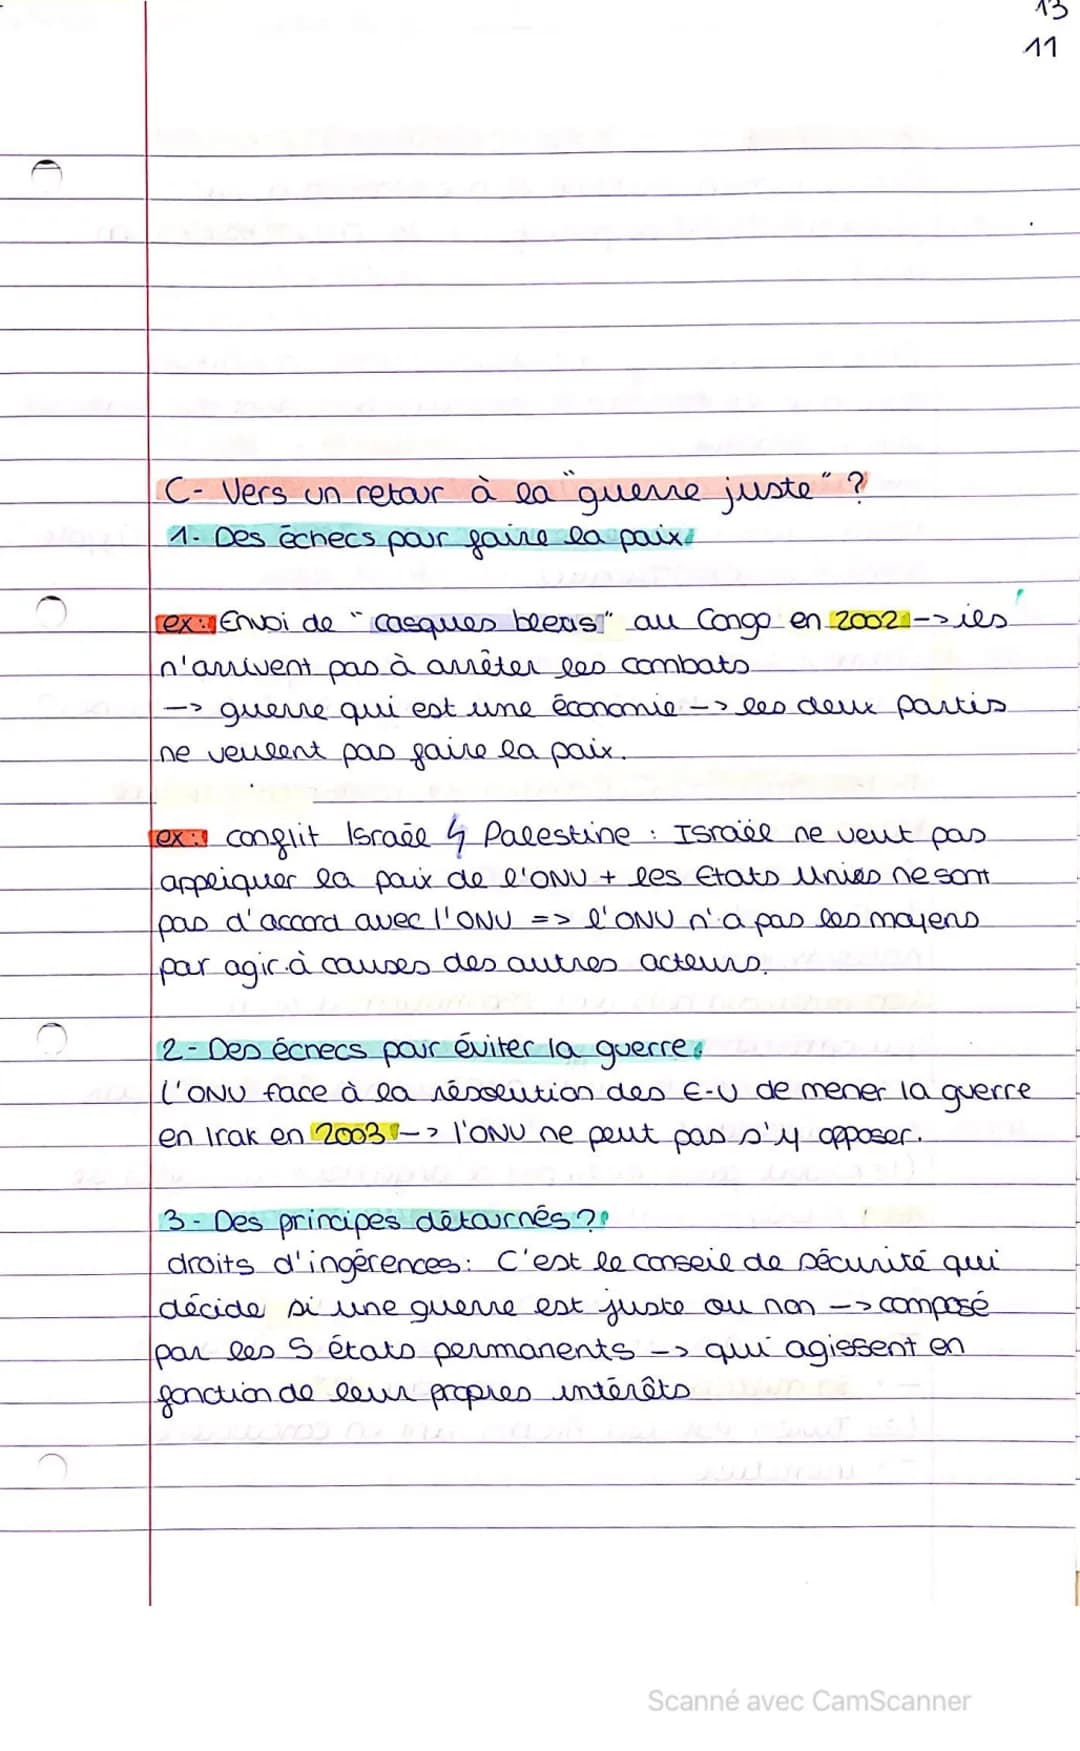 13
11
C- Vers un retour à la "guerre juste" ?
1- Des échecs pour faire la paix.
ex: Envoi de "casques bleus" au Congo en 2002 -> ils
n'arrivent pas à arrêter les combats
-> guerre qui est une économie -> les deux partis
ne veulent pas faire la paix.
ex: conflit Israël ↯ Palestine : Israël ne veut pas
appliquer la paix de l'ONU + les Etats Unies ne sont
pas d'accord avec l'ONU => l'ONU n'a pas les moyens
pour agir à causes des autres acteurs.
2- Des échecs pour éviter la guerre.
L'ONU face à la résolution des E-U de mener la guerre
en Irak en 2003 -> l'ONU ne peut pas s'y opposer.
3- Des principes détournés ?
droits d'ingérences: C'est le conseil de sécurité qui
décide si une guerre est juste ou non -> composé
par les 5 états permanents -> qui agissent en
fonction de leur propres intérêts
Scanné avec CamScanner